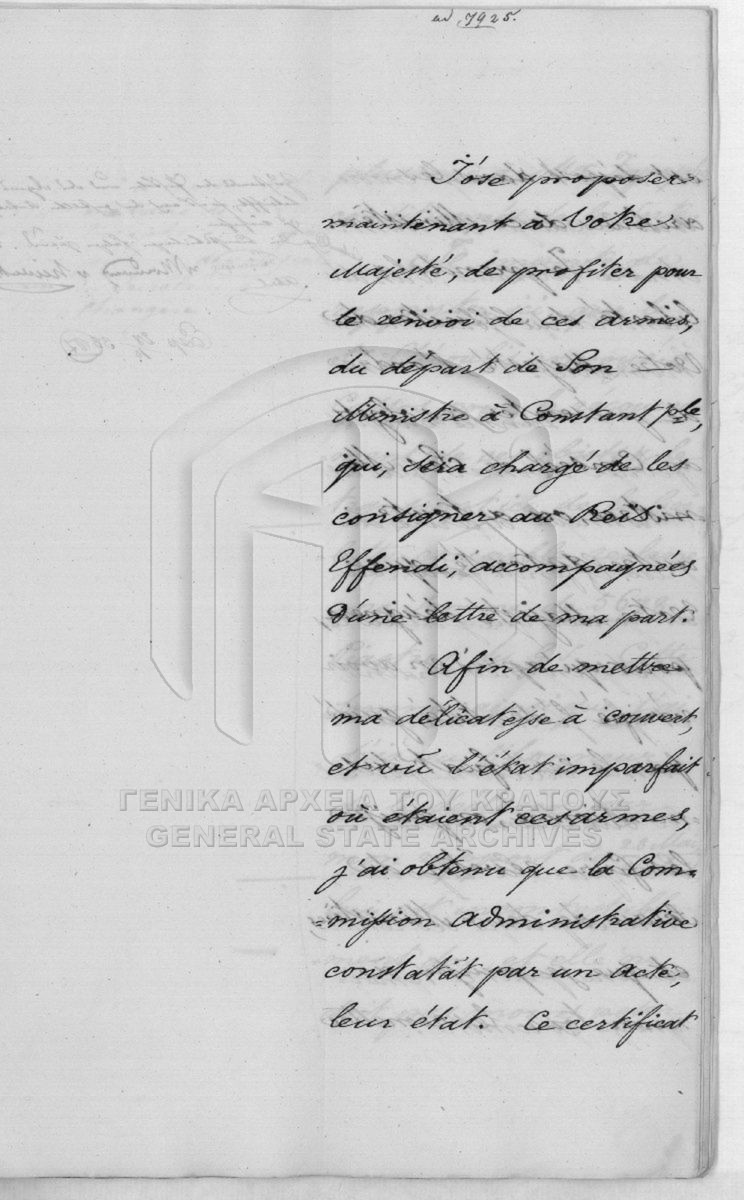 ad 7925.
J'ose proposer
maintenant à Votre
Majesté, de profiter pour
le renvoi de ces armes,
du départ de Son —
Ministre à Constantple,
qui, sera chargé de les
consigner au Reis
Effendi, accompagnées
d'une lettre de ma part.
Afin de mettre
ma délicatesse à couvert,
et vû l'état imparfait
où étaient ces armes,
j'ai obtenu que la Com=
=mission administrative
constatât par un acte,
leur état. Ce certificat
ΓΕΝΙΚΑ ΑΡΧΕΙΑ ΤΟΥ ΚΡΑΤΟΥΣ
GENERAL STATE ARCHIVES